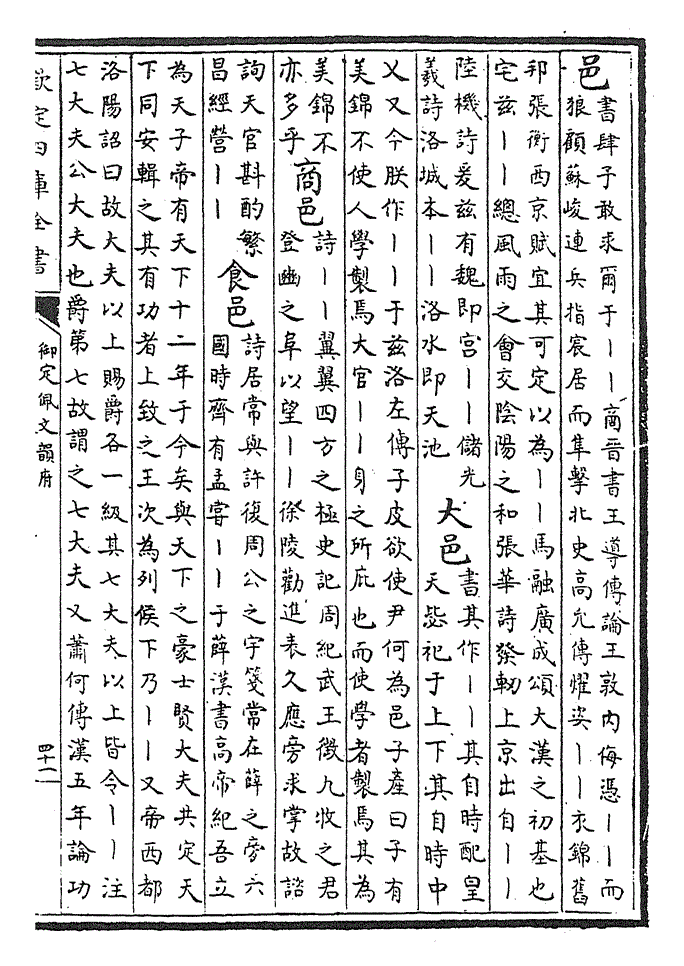 邑
書肆予敢求爾于丨丨商晉書王導傳論王敦内侮憑丨丨而
狼顧蘇峻連兵指宸居而隼擊北史高允傳耀姿丨丨衣錦舊
邦張衡西京賦宜其可定以為丨丨馬融廣成頌大漢之初基也
宅兹丨丨總風雨之會交陰陽之和張華詩發軔上京出自丨丨
陸機詩爰兹有魏即宮丨丨儲光
羲詩洛城本丨丨洛水即天池
大邑
書其作丨丨其自時配皇
天毖祀于上下其自時中
乂又今朕作丨丨于兹洛左傳子皮欲使尹何為邑子產曰子有
美錦不使人學製焉大官丨丨身之所庇也而使學者製焉其為
美錦不
亦多乎
商邑
詩丨丨翼翼四方之極史記周紀武王徵九牧之君
登豳之阜以望丨丨徐陵勸進表久應旁求掌故諮
詢天官斟酌繁
昌經營丨丨
食邑
詩居常與許復周公之宇箋常在薛之旁六
國時齊有孟嘗丨丨于薛漢書高帝紀吾立
為天子帝有天下十二年于今矣與天下之豪士賢大夫共定天
下同安輯之其有功者上致之王次為列侯下乃丨丨又帝西都
洛陽詔曰故大夫以上賜爵各一級其七大夫以上皆令丨丨注
七大夫公大夫也爵第七故謂之七大夫又蕭何傳漢五年論功
欽定四庫全書
御定佩文韻府
四十二